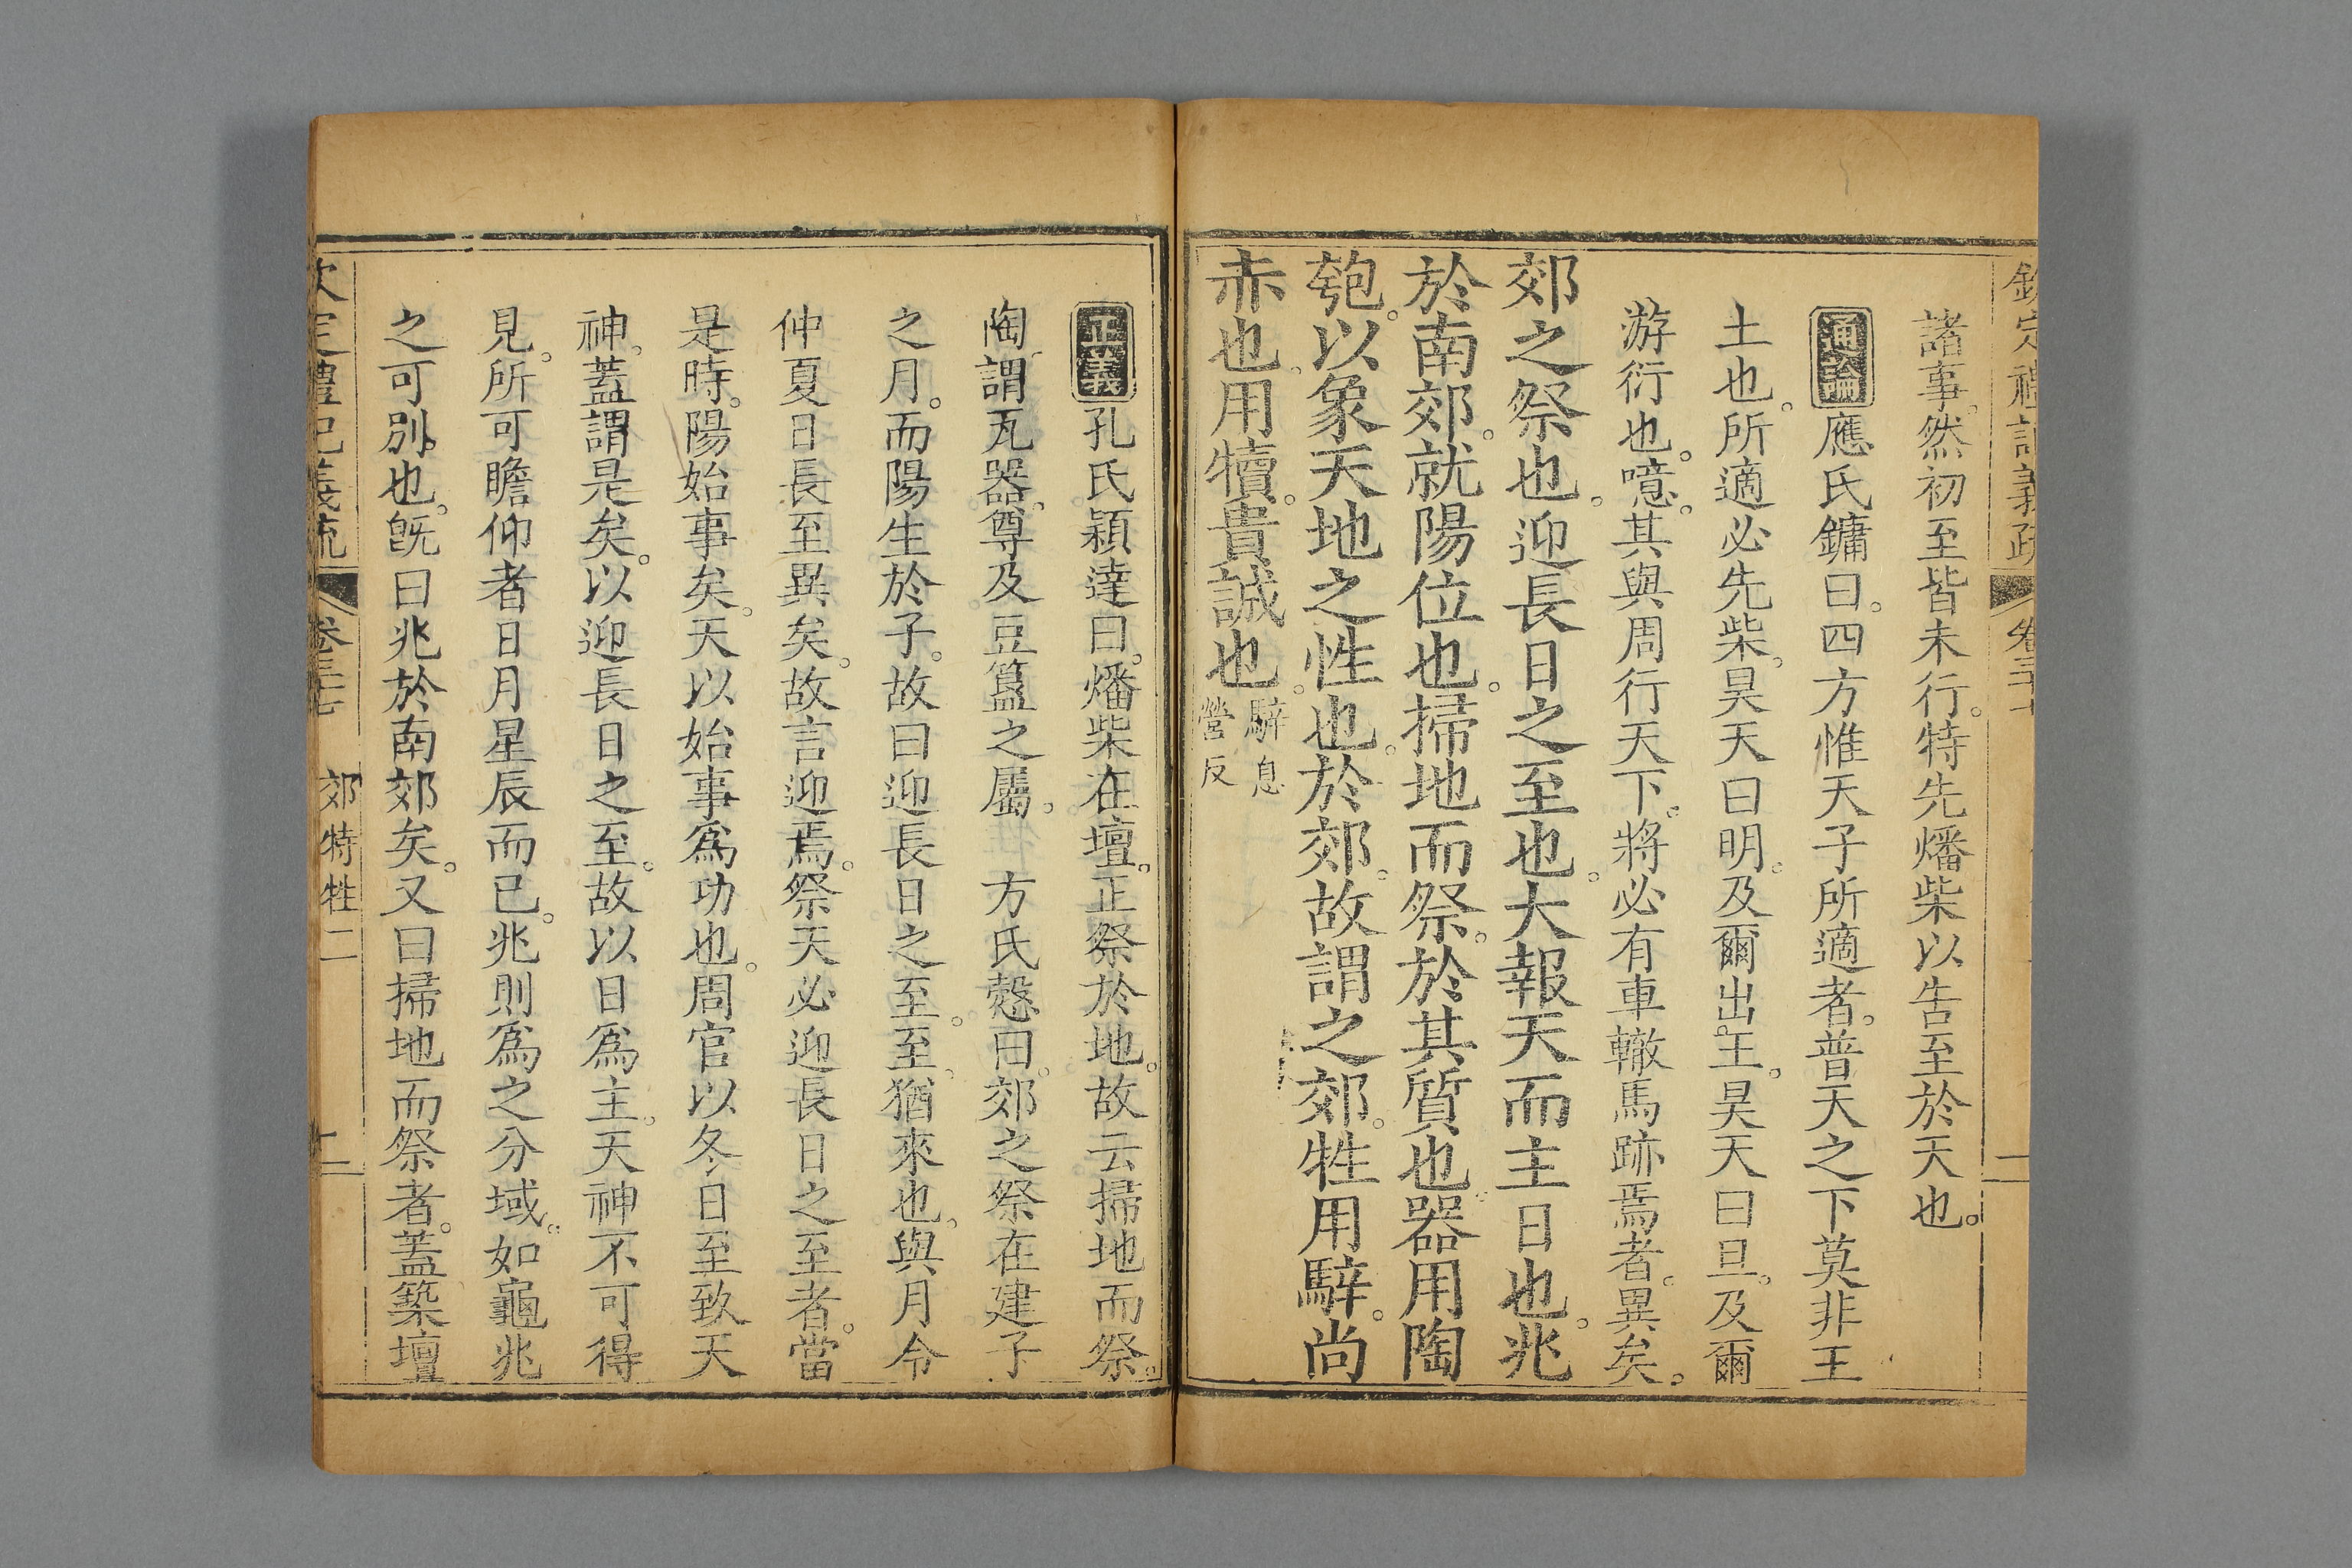 欽定禮記義疏 卷三十
諸事。然初至皆未行。特先燔柴以告至於天也。
通論應氏鏞曰。四方惟天子所適者。普天之下莫非王
土也。所適必先柴。昊天曰明。及爾出王。昊天曰旦。及爾
游衍也。噫。其與周行天下。將必有車轍馬跡焉者。異矣。
郊之祭也。迎長日之至也。大報天而主日也。兆
於南郊。就陽位也。掃地而祭。於其質也。器用陶
匏。以象天地之性也。於郊。故謂之郊。牲用騂。尚
赤也。用犢。貴誠也。騂息
營反
正義孔氏穎達曰。燔柴在壇。正祭於地。故云掃地而祭。
陶。謂瓦器。尊及豆簋之屬。 方氏慤曰。郊之祭在建子
之月。而陽生於子。故曰迎長日之至。至。猶來也。與月令
仲夏日長至異矣。故言迎焉。祭天必迎長日之至者。當
是時。陽始事矣。天以始事爲功也。周官以冬日至致天
神。蓋謂是矣。以迎長日之至。故以日爲主。天神不可得
見。所可瞻仰者日月星辰而已。兆則爲之分域。如龜兆
之可別也。旣曰兆於南郊矣。又曰掃地而祭者。蓋築壇
欽定禮記義疏 卷三七 郊特牲二 二